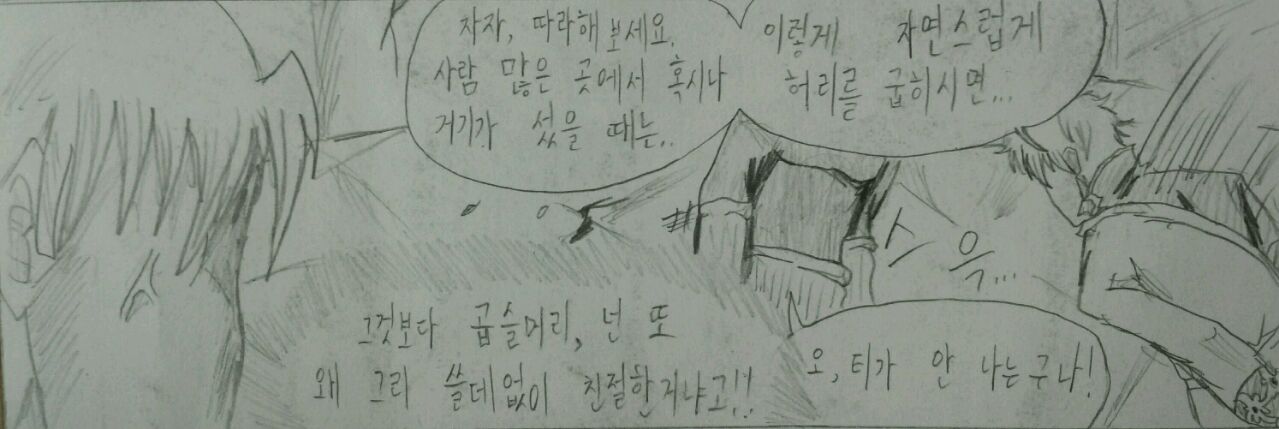 자자, 따라해 보세요.
사람 많은 곳에서 혹시나
거기가 섰을 때는..
이렇게 자연스럽게
허리를 굽히시면...
스윽...
그것보다 곱슬머리, 넌 또
왜 그리 쓸데없이 친절한지냐고!!
오, 티가 안 나는구나!